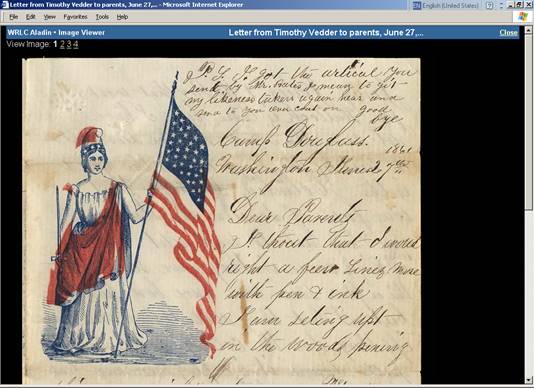 Letter from Timothy Vedder to parents, June 27,... - Microsoft Internet Explorer
EN English (United States)
File Edit View Favorites Tools Help
WRLC Aladin • Image Viewer
Letter from Timothy Vedder to parents, June 27,...
Close
View Image: 1 2 3 4
P. S. I got the artical you
sent by Mr. I mean to git
my likeness taken again hear and
send to you good
bye
Camp Douglass.
1861
Washington June 27th
Dear Parents
I thout that I would
right a few Lines more
with pen & ink
I am seting upt
in the woods